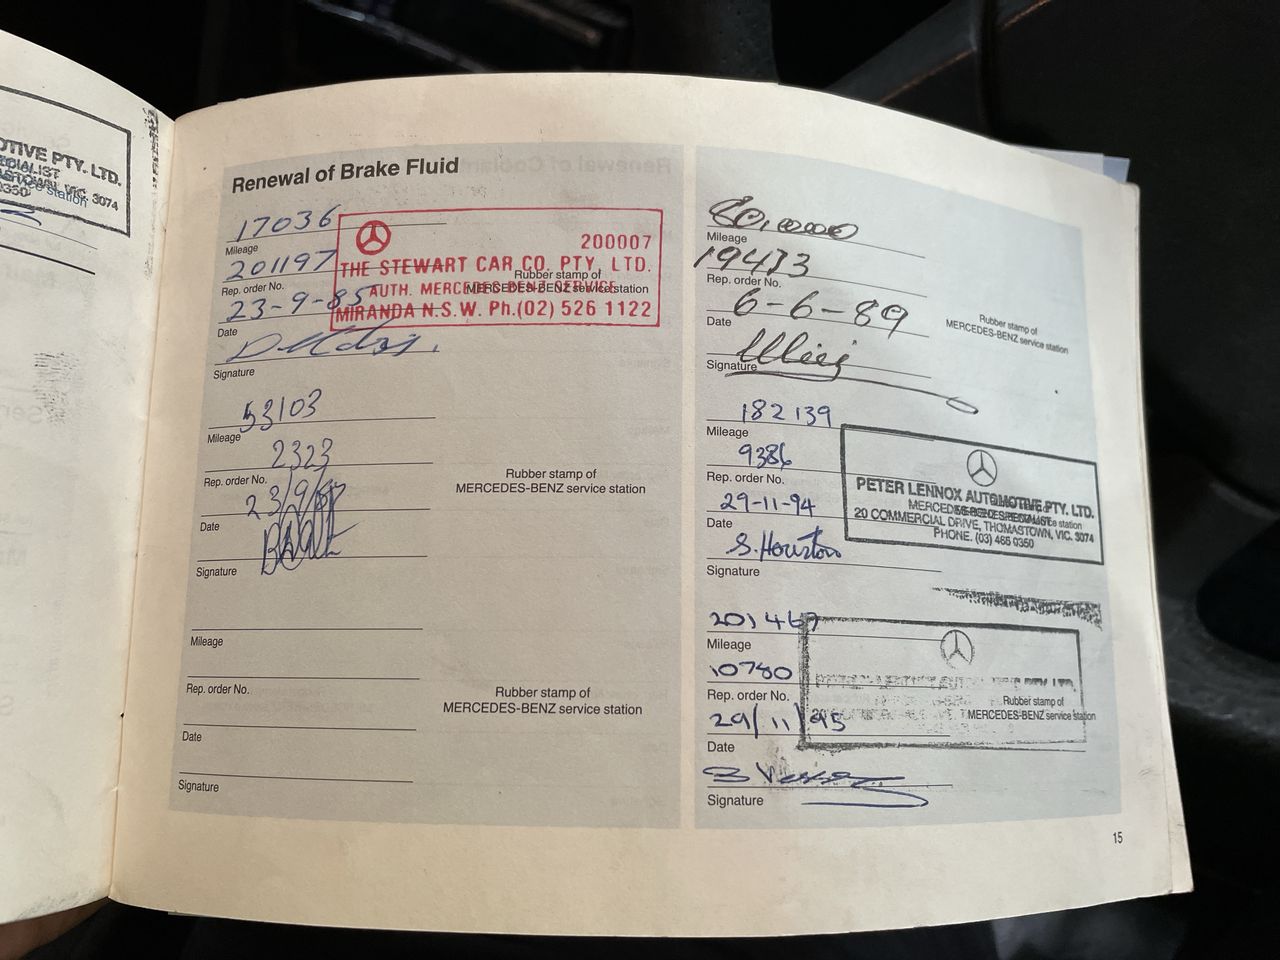 OTIVE PTY. LTD.
ECIALIST
MASTOWN, VIC. 3074
station
0350
Renewal of Brake Fluid
17036
Mileage
201197
Rep. order No.
23-9-85
Date
Signature
200007
THE STEWART CAR CO. PTY. LTD.
AUTH. MERCEDES-BENZ SERVICE
MIRANDA N.S.W. Ph.(02) 526 1122
Rubber stamp of
MERCEDES-BENZ service station
53103
Mileage
2323
Rep. order No.
23/9/87
Date
Signature
Rubber stamp of
MERCEDES-BENZ service station
Mileage
Rep. order No.
Date
Signature
Rubber stamp of
MERCEDES-BENZ service station
80,0000
Mileage
19473
Rep. order No.
6-6-89
Date
Signature
Rubber stamp of
MERCEDES-BENZ service station
182139
Mileage
9386
Rep. order No.
29-11-94
Date
S. Houston
Signature
PETER LENNOX AUTOMOTIVE PTY. LTD.
MERCEDES-BENZ SPECIALIST
20 COMMERCIAL DRIVE, THOMASTOWN, VIC. 3074
PHONE. (03) 465 0350
201467
Mileage
10780
Rep. order No.
29/11/95
Date
Signature
Rubber stamp of
MERCEDES-BENZ service station
15